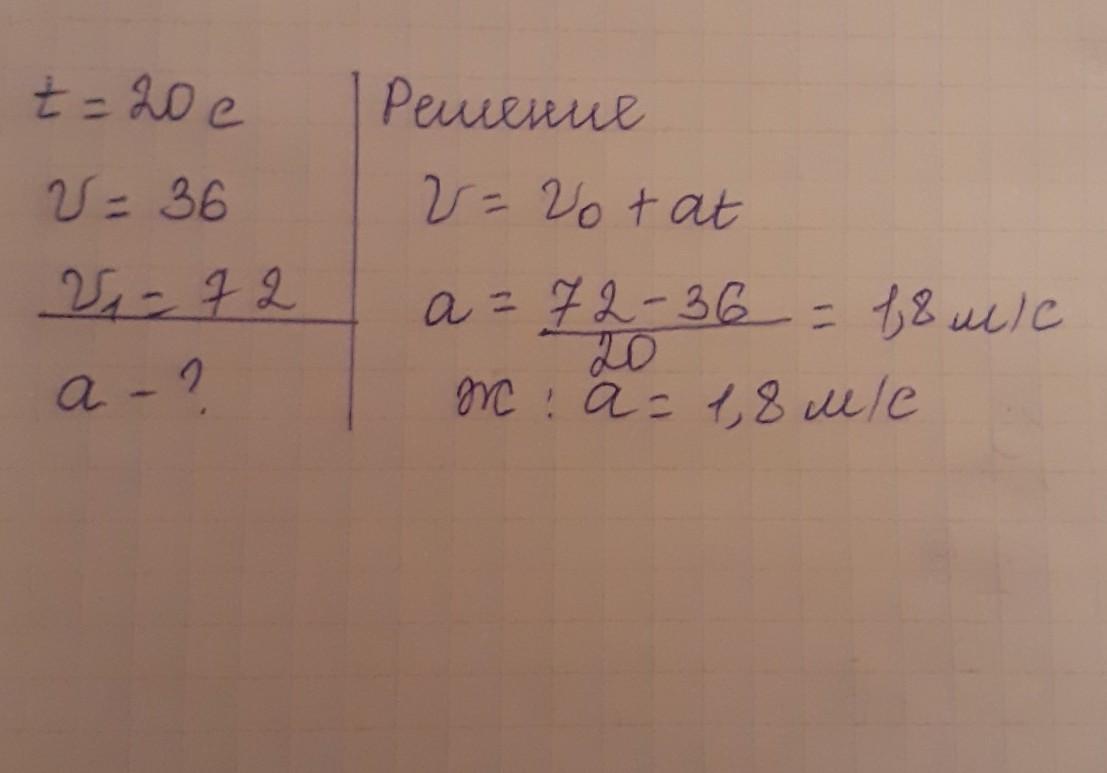 t = 20 с
v = 36
v₁ = 72
a - ?
Решение
v = v₀ + at
a = 72 - 36 / 20 = 1,8 м/с
ж : a = 1,8 м/с